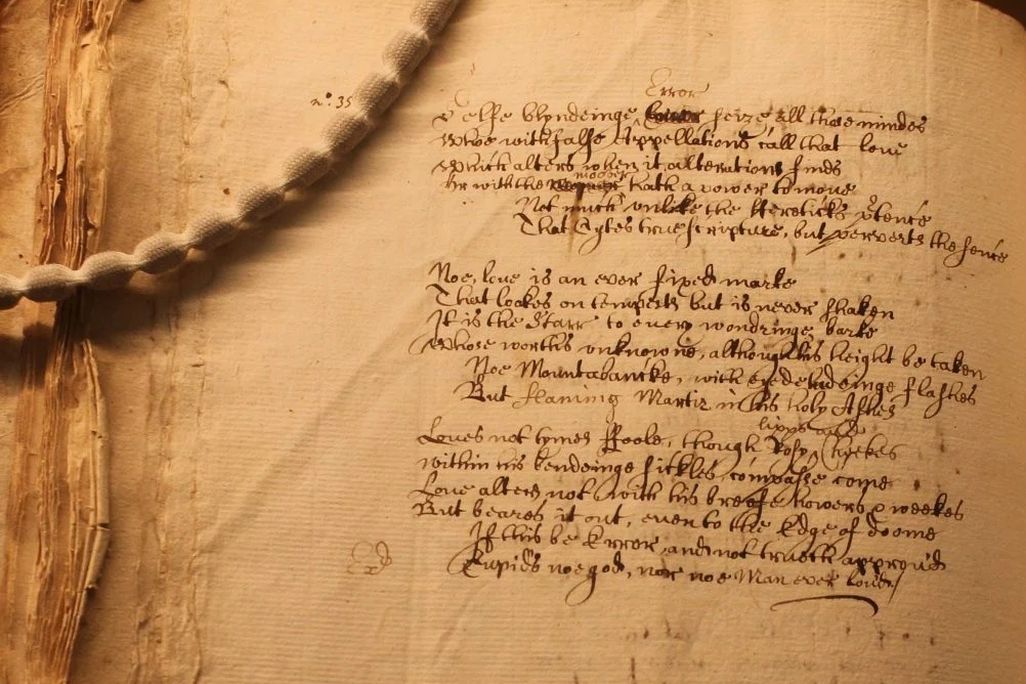 Error
n°: 35
Selfe blyndeinge seize all those mindes
Whoe with false Appellations call that love
Which alters when it alterations finds
moover
Or with the hath a power to move
Not much unlike the Hereticks ptence
That Cytes true scripture, but perverts the sence
Noe, love is an ever fixed marke
That lookes on tempests but is never shaken
It is the Starr to every wandringe barke
Whose worths unknowne, although his height be taken
Noe Mountabancke, with eye deludeinge flashes
But flaming Martir in his holy Ashes
lipps and
Loves not tymes ffoole, though Rosy Cheekes
within his bendeinge sickles compasse come
Love alters not with his breife howers & weekes
But beares it out, even to the Edge of doome
If this be Error and not trueth approvd
Cupids noe god, nor noe Man ever lovd